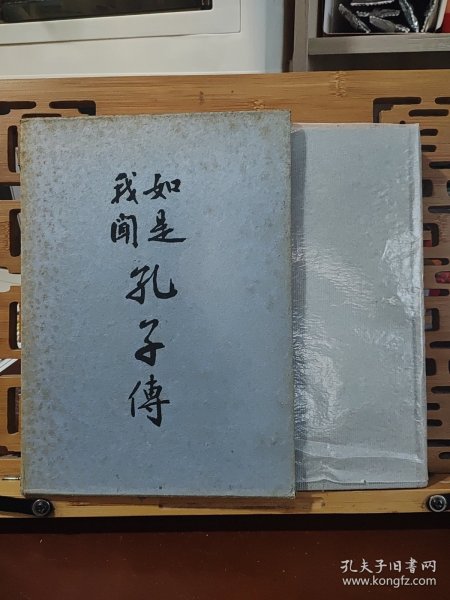 如是
我聞
孔子傳
孔夫子旧书网
www.kongfz.com